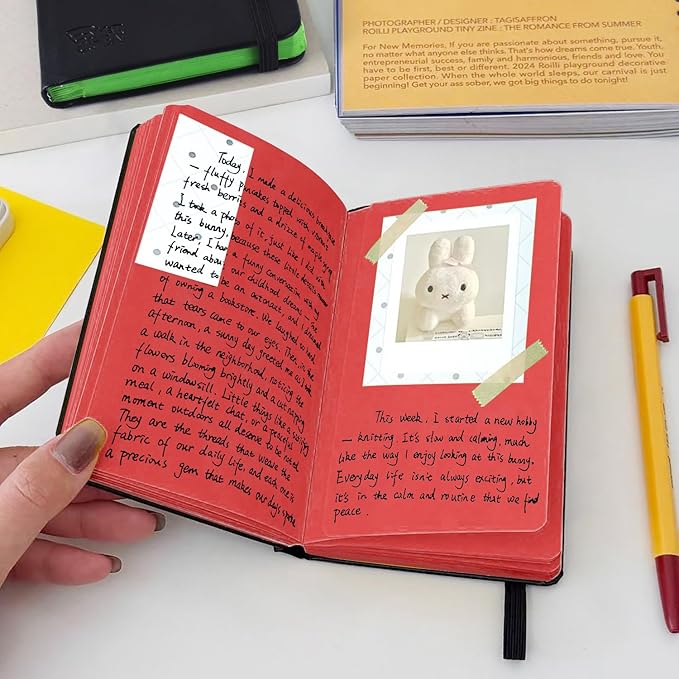 PHOTOGRAPHER / DESIGNER : TAGISAFFRON
ROILLI PLAYGROUND TINY ZINE : THE ROMANCE FROM SUMMER
For New Memories, If you are passionate about something, pursue it,
no matter what anyone else thinks. That's how dreams come true. Youth,
entrepreneurial success, family and harmonious, friends and love. You
have to be first, best or different. 2024 Roilli playground decorative
paper collection. When the whole world sleeps, our carnival is just
beginning! Get your ass sober, we got big things to do tonight!
Today, I made a delicious breakfast
— fluffy pancakes topped with vibrant
fresh berries and a drizzle of maple syrup.
I took a photo of it, just like I did with
this bunny, because those little details
Later, I had a funny conversation with my
friend about our childhood dreams – he
wanted to be an astronaut, and I dreamed
of owning a bookstore. We laughed so hard
that tears came to our eyes. Then, in the
afternoon, a sunny day greeted me as I took
a walk in the neighborhood, noticing the
flowers blooming brightly and a cat napping
on a windowsill. Little things like a satisfying
meal, a heartfelt chat, or a peaceful
moment outdoors all deserve to be noted.
They are the threads that weave the
fabric of our daily life, and each one is
a precious gem that makes our days
This week, I started a new hobby
— knitting. It's slow and calming, much
like the way I enjoy looking at this bunny.
Everyday life isn't always exciting, but
it's in the calm and routine that we find
peace.